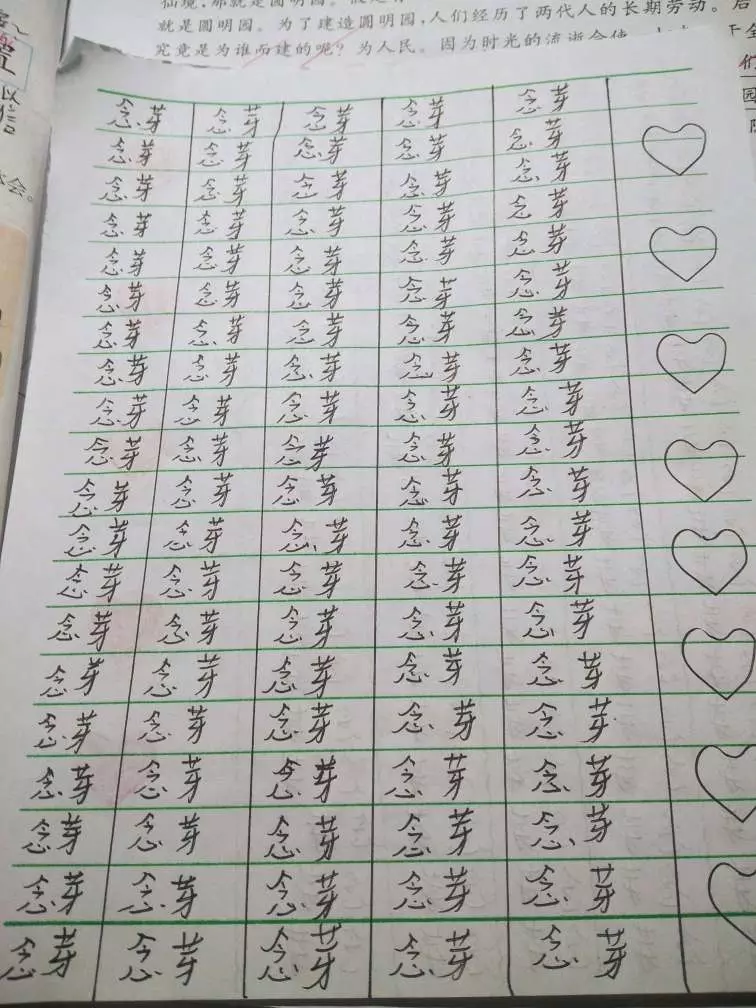 仙境,那就是圆明园。
就是圆明园。为了建造圆明园,人们经历了两代人的长期劳动。后
究竟是为谁而建的呢?为人民。因为时光的流逝会使
们
园
以
会。
念芽 念芽 念芽 念芽 念芽
念芽 念芽 念芽 念芽 念芽
念芽 念芽 念芽 念芽 念芽
念芽 念芽 念芽 念芽 念芽
念芽 念芽 念芽 念芽 念芽
念芽 念芽 念芽 念芽 念芽
念芽 念芽 念芽 念芽 念芽
念芽 念芽 念芽 念芽 念芽
念芽 念芽 念芽 念芽 念芽
念芽 念芽 念芽 念芽 念芽
念芽 念芽 念芽 念芽 念芽
念芽 念芽 念芽 念芽 念芽
念芽 念芽 念芽 念芽 念芽
念芽 念芽 念芽 念芽 念芽
念芽 念芽 念芽 念芽 念芽
念芽 念芽 念芽 念芽 念芽
念芽 念芽 念芽 念芽 念芽
念芽 念芽 念芽 念芽 念芽
念芽 念芽 念芽 念芽 念芽
念芽 念芽 念芽 念芽 念芽